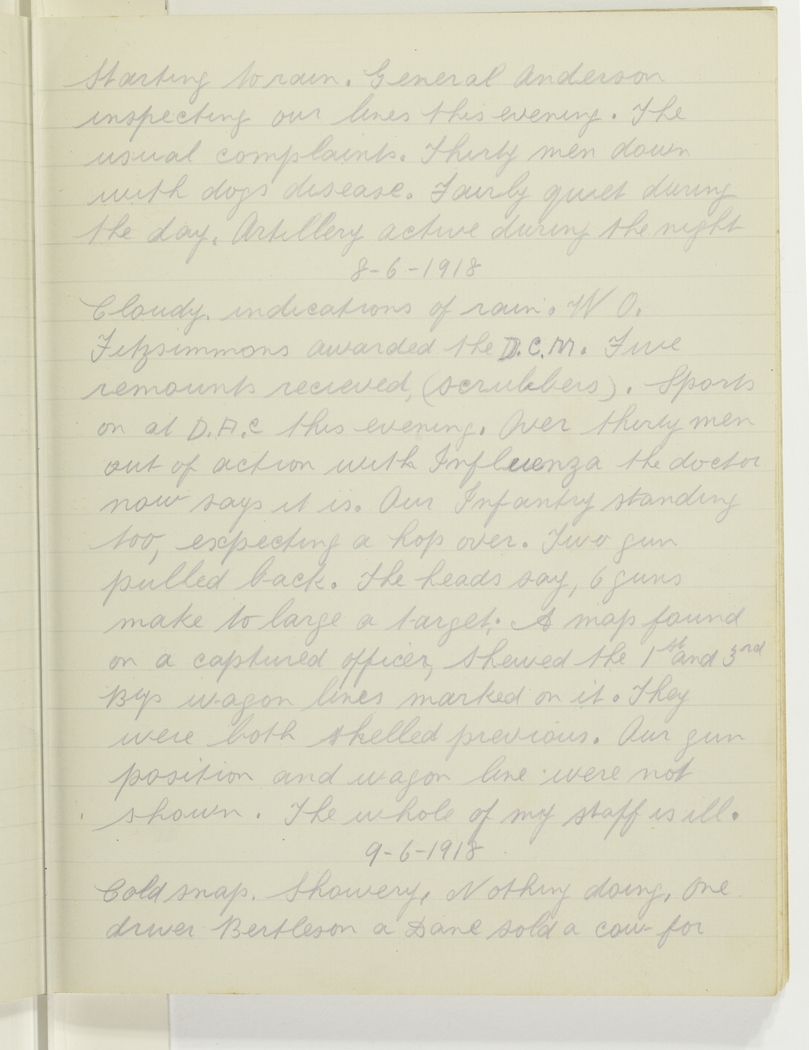 Starting to rain. General Anderson
inspecting our lines this evening. The
usual complaints. Thirty men down
with dogs disease. Fairly quiet during
the day. Artillery active during the night
8-6-1918
Cloudy. indications of rain. W O.
Fitzsimmons awarded the D.C.M. Five
remounts recieved, (scrubbers). Sports
on at D.A.C this evening. Over thirty men
out of action with Influenza the doctor
now says it is. Our Infantry standing
too, expecting a hop over. Two gun
pulled back. The heads say, 6 guns
make to large a target. A map found
on a captured officer, shewed the 1st and 3rd
Btys wagon lines marked on it. They
were both shelled previous. Our gun
position and wagon line were not
shown. The whole of my staff is ill.
9-6-1918
Cold snap. Showery, Nothing doing, One
driver Bertleson a Dane sold a cow for